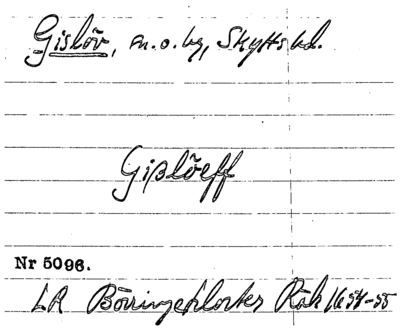 Gislöv, sn. o. by, Skytts hd.
Gißlöeff
Nr 5096.
LA Börringeklosters Räk 1654-55